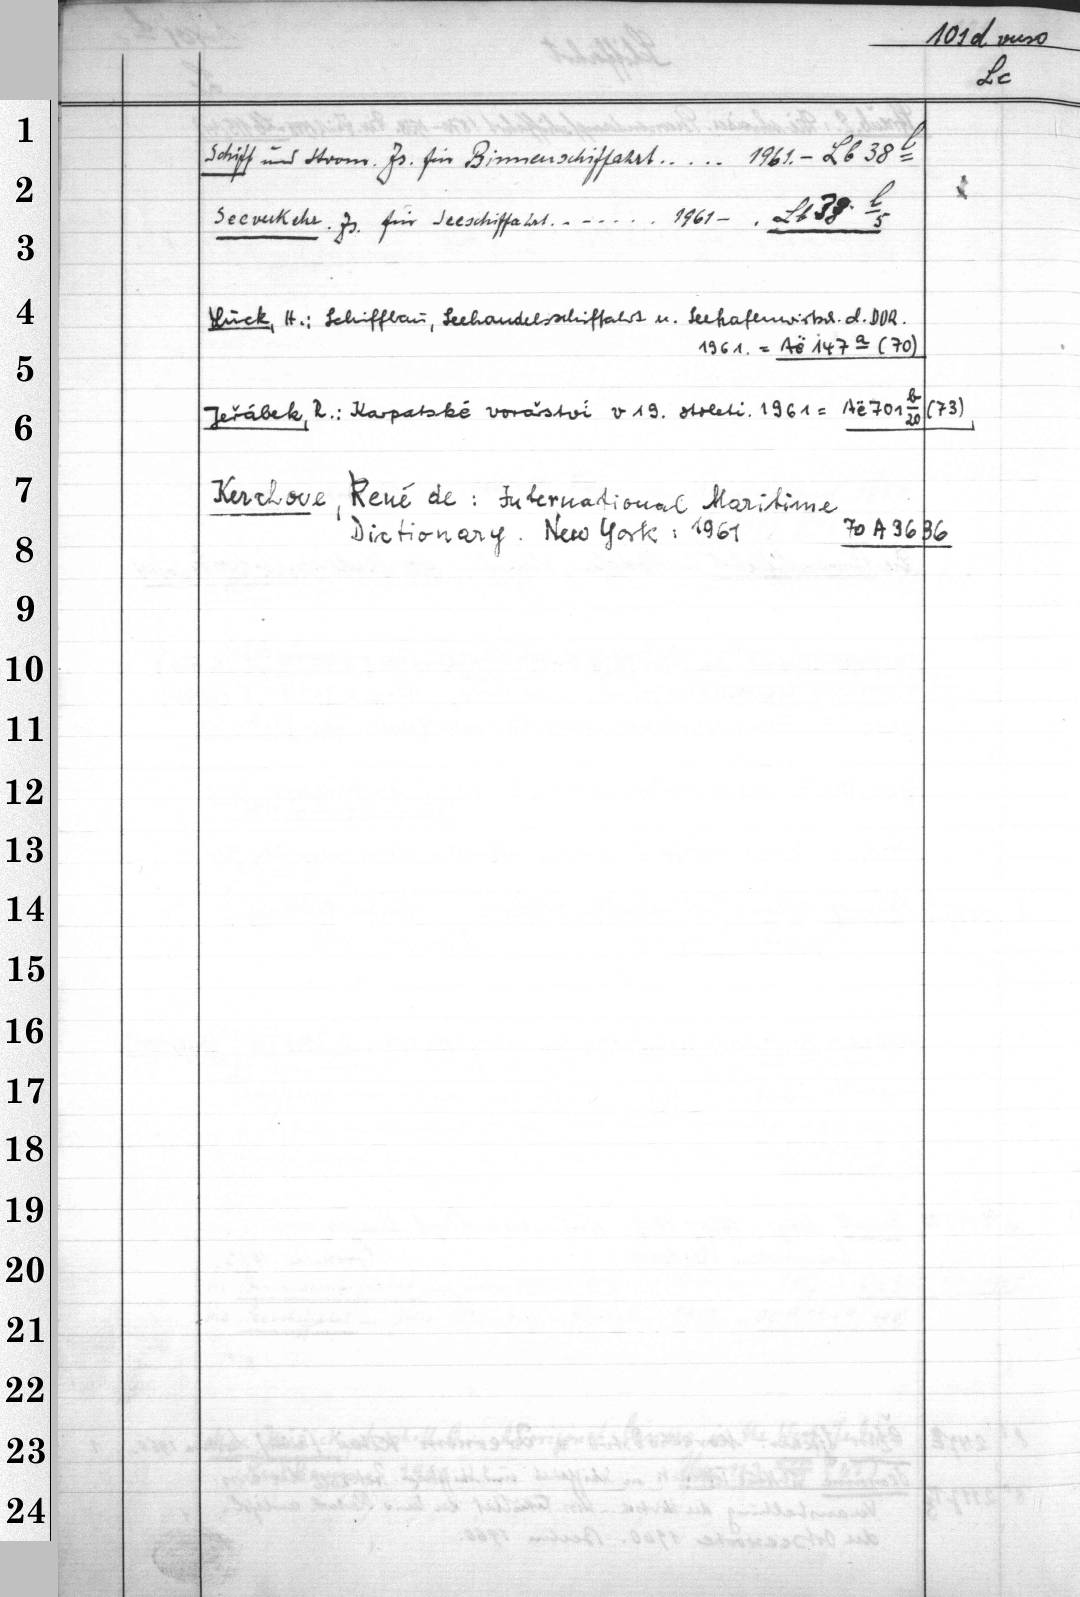 101d verso
Lc
1
Schiff und Strom. Zs. für Binnenschiffahrt..... 1961.- Lb 38 l
2
Seeverkehr. Zs. für Seeschiffahrt. - - . . . . 1961- . Lb 38 l/5
3
4
H.: Schiffbau, Seehandelsschiffahrt u. Seehafenwirtsch. d. DDR.
1961. = Aë 147 a (70)
5
Jeřábek, R.: Karpatské vorařství v 19. století. 1961 = Aë 701 b/20 (73)
6
7
Kerchove, René de : International Maritime
Dictionary. New York : 1961 70 A 3636
8
9
10
11
12
13
14
15
16
17
18
19
20
21
22
23
24